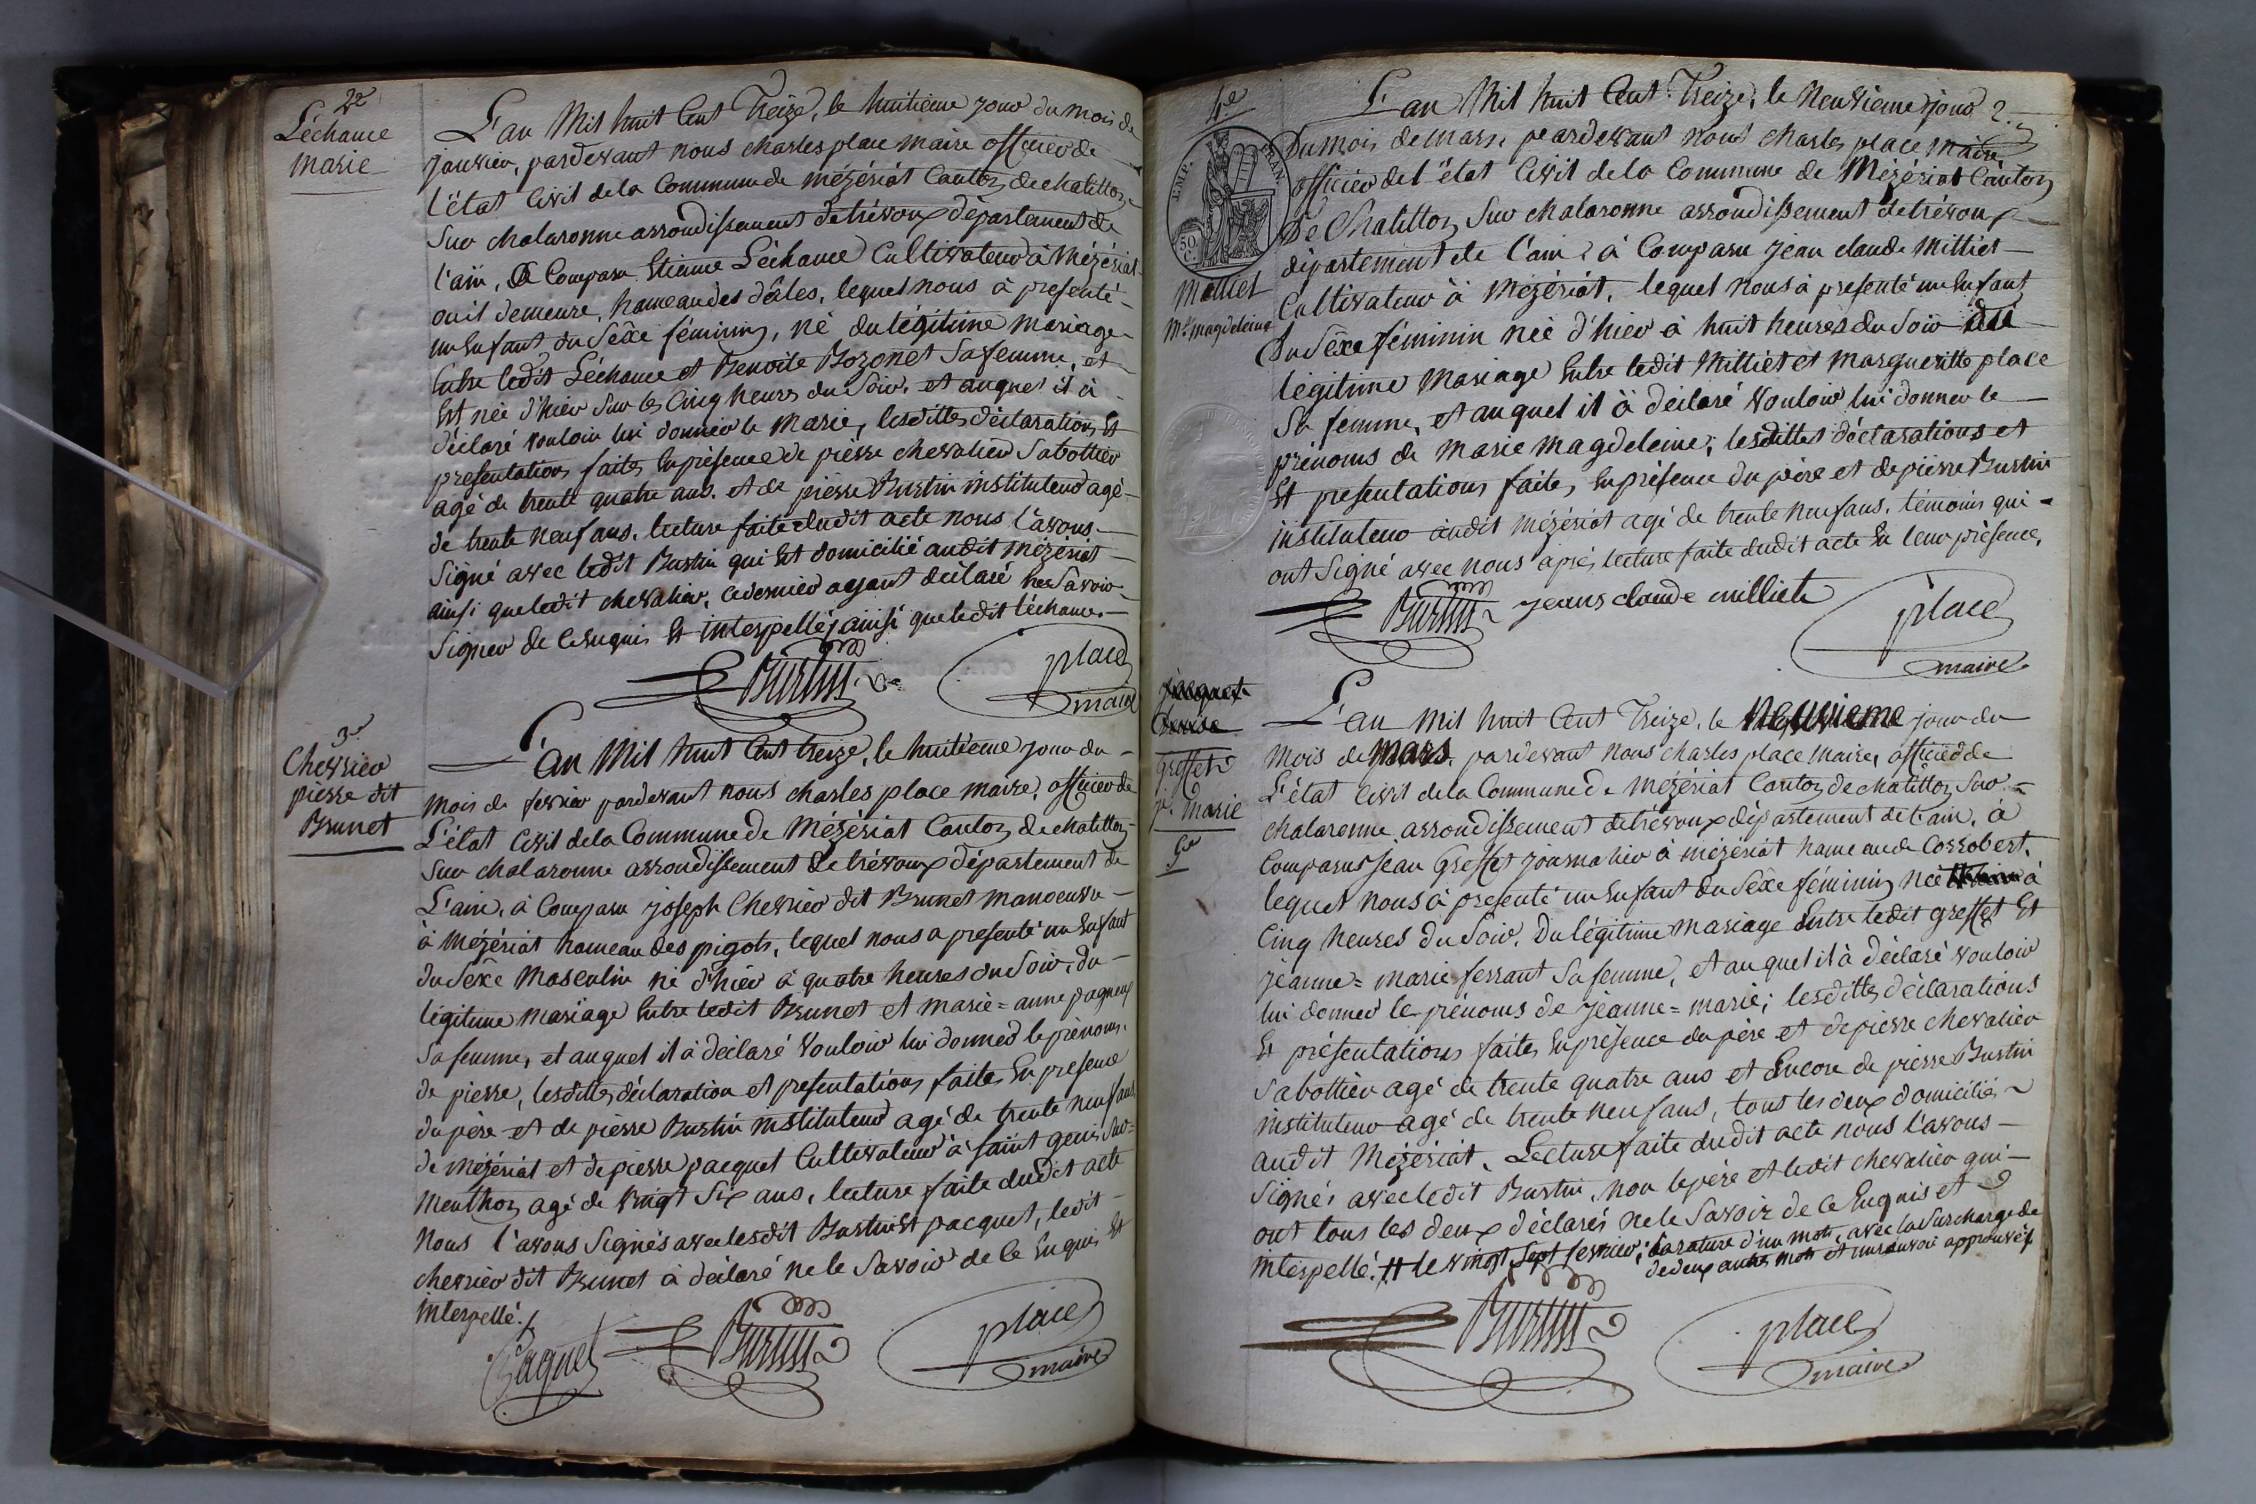 2e
Léchance
Marie
L'an Mil huit Cent Treize, le huitieme jour du mois de
janvier, pardevant nous charles place maire officier de
l'état Civil de la Commune de Mézériat Canton de chatillon
Sur chalaronne arrondissement de trévoux département de
l'ain, à Comparu Etienne Léchance Cultivateur à Mézériat
ou il demeure, hameau des dâles, lequel nous à presenté
un Enfant du Sèxe féminin, né du légitime Mariage
Entre ledit Léchance et Benoite Bozonet Sa femme, et
Est née d'hier Sur les Cinq heures du Soir, et auquel il à
déclaré vouloir lui donner le Marie, lesdittes déclarations Et
presentations faites En présence de pierre chevalier Sabottier
agé de trente quatre ans. et de pierre Burtin instituteur agé
de trente neuf ans. lecture faite dudit acte nous l'avons
Signé avec ledit Burtin qui Est domicilié audit Mézériat
ainsi que ledit chevalier, ce dernier ayant déclaré ne Savoir
Signer de ce Enquis Et interpellé, ainsi que ledit Léchance.
Burtin place
maire
3e
Chevrier
pierre dit
Brunet
L'an Mil huit Cent treize, le huitième jour du
mois de fevrier pardevant nous charles place maire, officier de
L'état Civil de la Commune de Mézériat Canton de chatillon
Sur chalaronne arrondissement de trévoux département de
L'ain, à Comparu joseph Chevrier dit Brunet manoeuvre
à Mézériat hameau des pigots, lequel nous a presenté un Enfant
du Sèxe Masculin né d'hier à quatre heures du Soir, du
légitime Mariage Entre ledit Brunet et Marie=anne pagneux
Sa femme, et auquel il à déclaré Vouloir lui donner le prénoms
de pierre, lesdittes déclaration et presentations faites En presence
du père et de pierre Burtin instituteur agé de trente neuf ans
de Mézériat et de pierre pacquet Cultivateur à saint genis Sur=
Menthon agé de vingt Six ans, lecture faite dudit acte
Nous l'avons Signés avec lesdit Burtin Et pacquet, ledit
chevrier dit Brunet à déclaré ne le Savoir de ce Enquis Et
interpellé.
Paquet Burtin place
maire
4e
2.
IMP.
50
C.
Milliet
Mie magdeleine
L'an Mil huit Cent Treize, le Neuvieme jour
Du mois de mars, pardevant nous charles place maire
officier de l'état Civil de la Commune de Mézériat Canton
De Chatillon Sur chalaronne arrondissement de trévoux
département de l'ain, à Comparu jean claude Milliet
Cultivateur à Mézériat, lequel nous à presenté un Enfant
Du Sèxe féminin née d'hier à huit heures du Soir du
légitime Mariage Entre ledit Milliet et Margueritte place
Sa femme, et auquel il à déclaré Vouloir lui donner le
prénoms de Marie Magdeleine; lesdittes déclarations et
Et presentations faites, En présence du père et de pierre Burtin
instituteur audit Mézériat agé de trente neuf ans, témoins qui
ont Signé avec nous après lecture faite dudit acte En leur présence.
Burtin jeans claude milliet place
maire
jacquet
Grosset
je. Marie
5e
L'an Mil huit Cent Treize, le Neuvieme jour du
Mois de Mars, pardevant nous charles place Maire, officier de
L'état Civil de la Commune de Mézériat Canton de chatillon Sur
chalaronne arrondissement de trévoux département de l'ain, à
Comparus jean Greffet journalier à mézériat hameau de Corrobert,
lequel nous à presenté un Enfant du Sèxe féminin née à
Cinq heures du Soir. Du légitime Mariage Entre ledit greffet Et
jeanne=marie ferrant Sa femme, et auquel il à déclaré Vouloir
lui donner le prénoms de jeanne=marie; lesdittes déclarations
Et présentations faites En présence du père et de pierre chevalier
Sabottier agé de trente quatre ans et Encore de pierre Burtin
instituteur agé de trente neuf ans, tous les deux domiciliés
audit Mézériat. Lecture faite dudit acte nous l'avons
Signés avec ledit Burtin, non le père et ledit chevalier qui
ont tous les deux déclarés ne le Savoir de ce Enquis et
interpellé. # le vingt sept fevrier; la rature d'un mots, avec la Surcharge de
de deux autres mots et un renvoi approuvés
Burtin place
maire